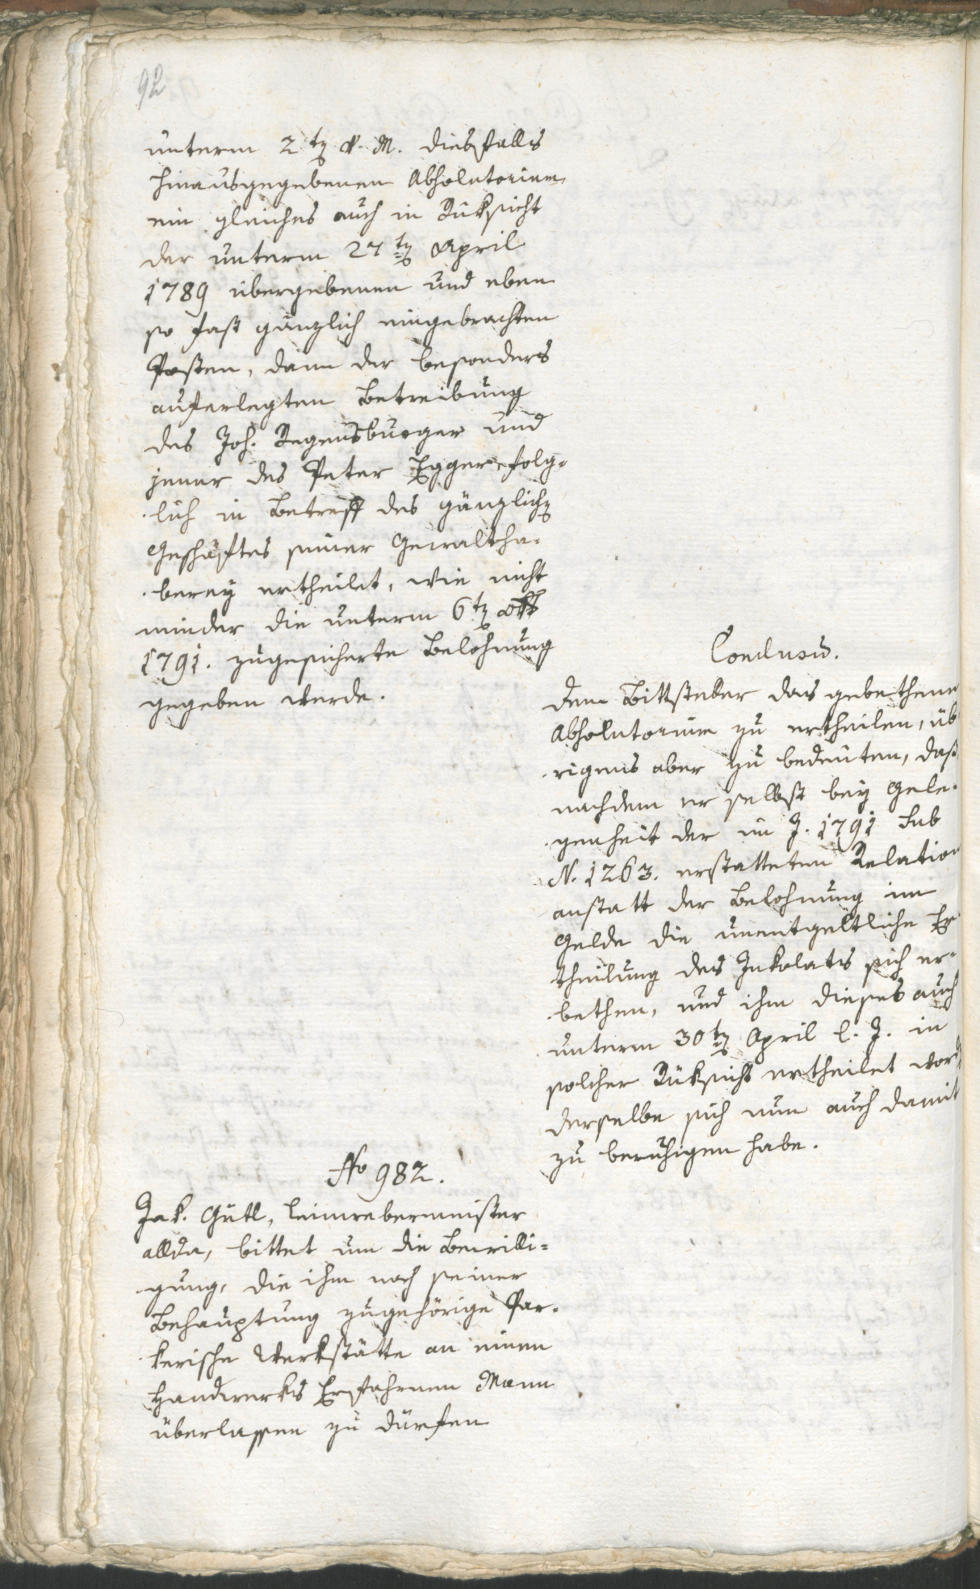 92
unterm 2t v. M. diesfalls
hinausgegebenen Absolutorium
ein gleiches auch in Rüksicht
der unterm 27t April
1789 übergebenen und eben
so fast gänzlich eingebrachten
Posten, dann der besonders
auferlegten Betreibung
des Joh. Regensburger und
jener des Peter Egger folg-
lich in Betreff des gänzlich
Geschäftes seiner Gewaltha-
berey ertheilet, wie nicht
minder die unterm 6t
1791. zugesicherte Belohnung
gegeben werde.
Conclusu.
Dem Bittsteller das gebethene
Absolutorium zu ertheilen, üb
rigens aber zu bedeuten, daß
nachdem er selbst bey Gele-
genheit der im J. 1791 sub
N. 1263. erstatteten Relation
anstatt der Belohnung im
Gelde die unentgeltliche Er
theilung des Inkolats sich er-
bethen, und ihm dieses auch
unterm 30t April l. J. in
solcher Rüksicht ertheilet word
derselbe sich nun auch damit
zu beruhigen habe.
No 982.
Jak. Gütl, Leinwebermeister
allda, bittet um die Bewilli-
gung, die ihm nach seiner
Behauptung zugehörige Par-
kerische Werkstätte an einen
Handwerks Erfahrnen Mann
überlassen zu dürfen